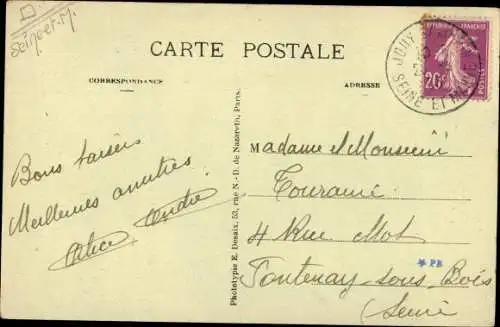 Seine-et-M.
CARTE POSTALE
CORRESPONDANCE
ADRESSE
JOUY
SEINE ET MARNE
20c
POSTES
Bons baisers
Meilleures amitiés
Alice André
Phototypie E. Desaix, 53, rue N.-D. de Nazareth, Paris.
Madame et Monsieur
Touramé
4 Rue Mot
* PB
Fontenay-sous-Bois
(Seine